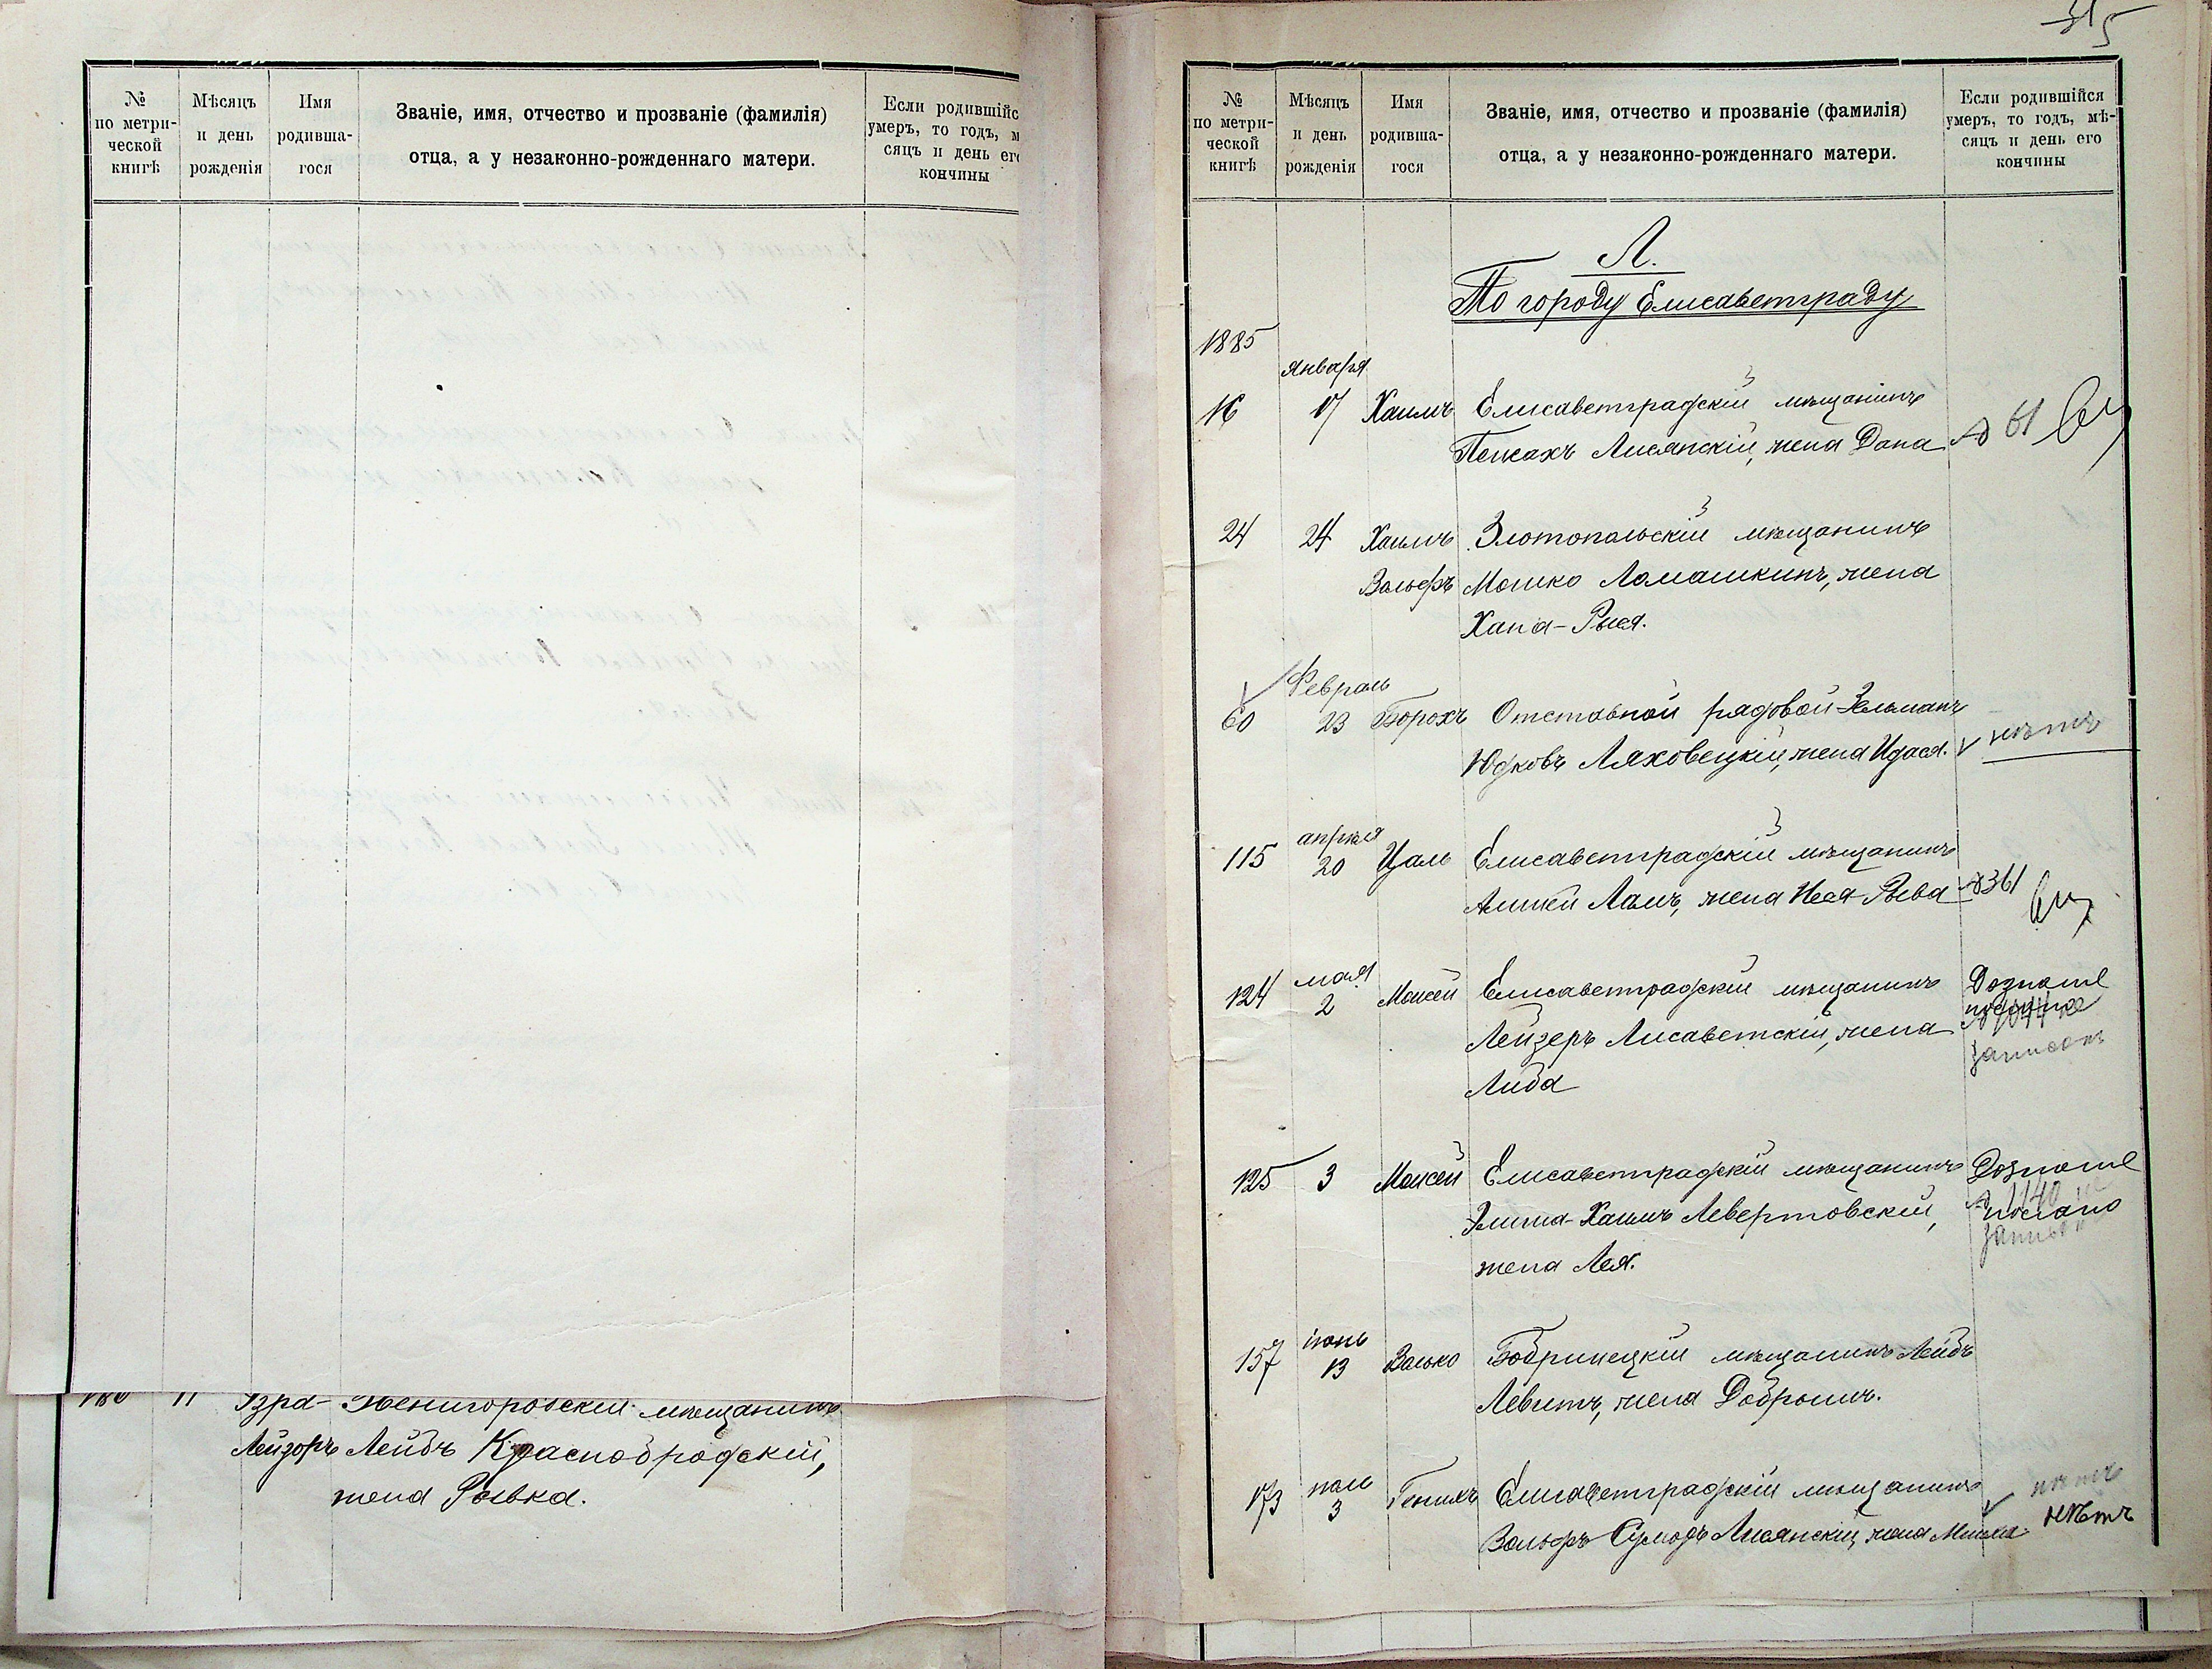 №
по метри-
ческой
книгѣ
Мѣсяцъ
и день
рожденія
Имя
родивша-
гося
Званіе, имя, отчество и прозваніе (фамилія)
отца, а у незаконно-рожденнаго матери.
Если родившійс
умеръ, то годъ, м
сяцъ и день его
кончины
11 Эзра- Звенигородскій мѣщанинъ
Лейзоръ Лейбъ Краснобродскій,
жена Рывка.
315
№
по метри-
ческой
книгѣ
Мѣсяцъ
и день
рожденія
Имя
родивша-
гося
Званіе, имя, отчество и прозваніе (фамилія)
отца, а у незаконно-рожденнаго матери.
Если родившійся
умеръ, то годъ, мѣ-
сяцъ и день его
кончины
Л.
По городу Елисаветграду
1885
января
16 17 Хаимъ Елисаветградскій мѣщанинъ
Пейсахъ Лисянскій, жена Дана № 61
24 24 Хаимъ Златопольскій мѣщанинъ
Вольфъ Мошко Ломашкинъ, жена
Хана-Рыся.
Февраль
60 23 Борохъ Отставной рядовой Зельманъ
Юдковъ Ляховецкій, жена Идася. нѣтъ
апрѣля
115 20 Цаль Елисаветградскій мѣщанинъ
Ламъ, жена Неся-Рыва №361
мая
124 2 Моисей Елисаветградскій мѣщанинъ
Лейзеръ Лисаветскій, жена
Либа
записанъ
125 3 Моисей Елисаветградскій мѣщанинъ
Элиша-Хаимъ Левертовскій,
№ 1140
послано
жена Лея.
іюнь
157 13 Волько Бобринецкій мѣщанинъ Лейбъ
Левитъ, жена Добрышъ.
іюль
173 3 Генихъ Елисаветградскій мѣщанинъ нѣтъ
Вольфъ Лисянскій, жена нѣтъ